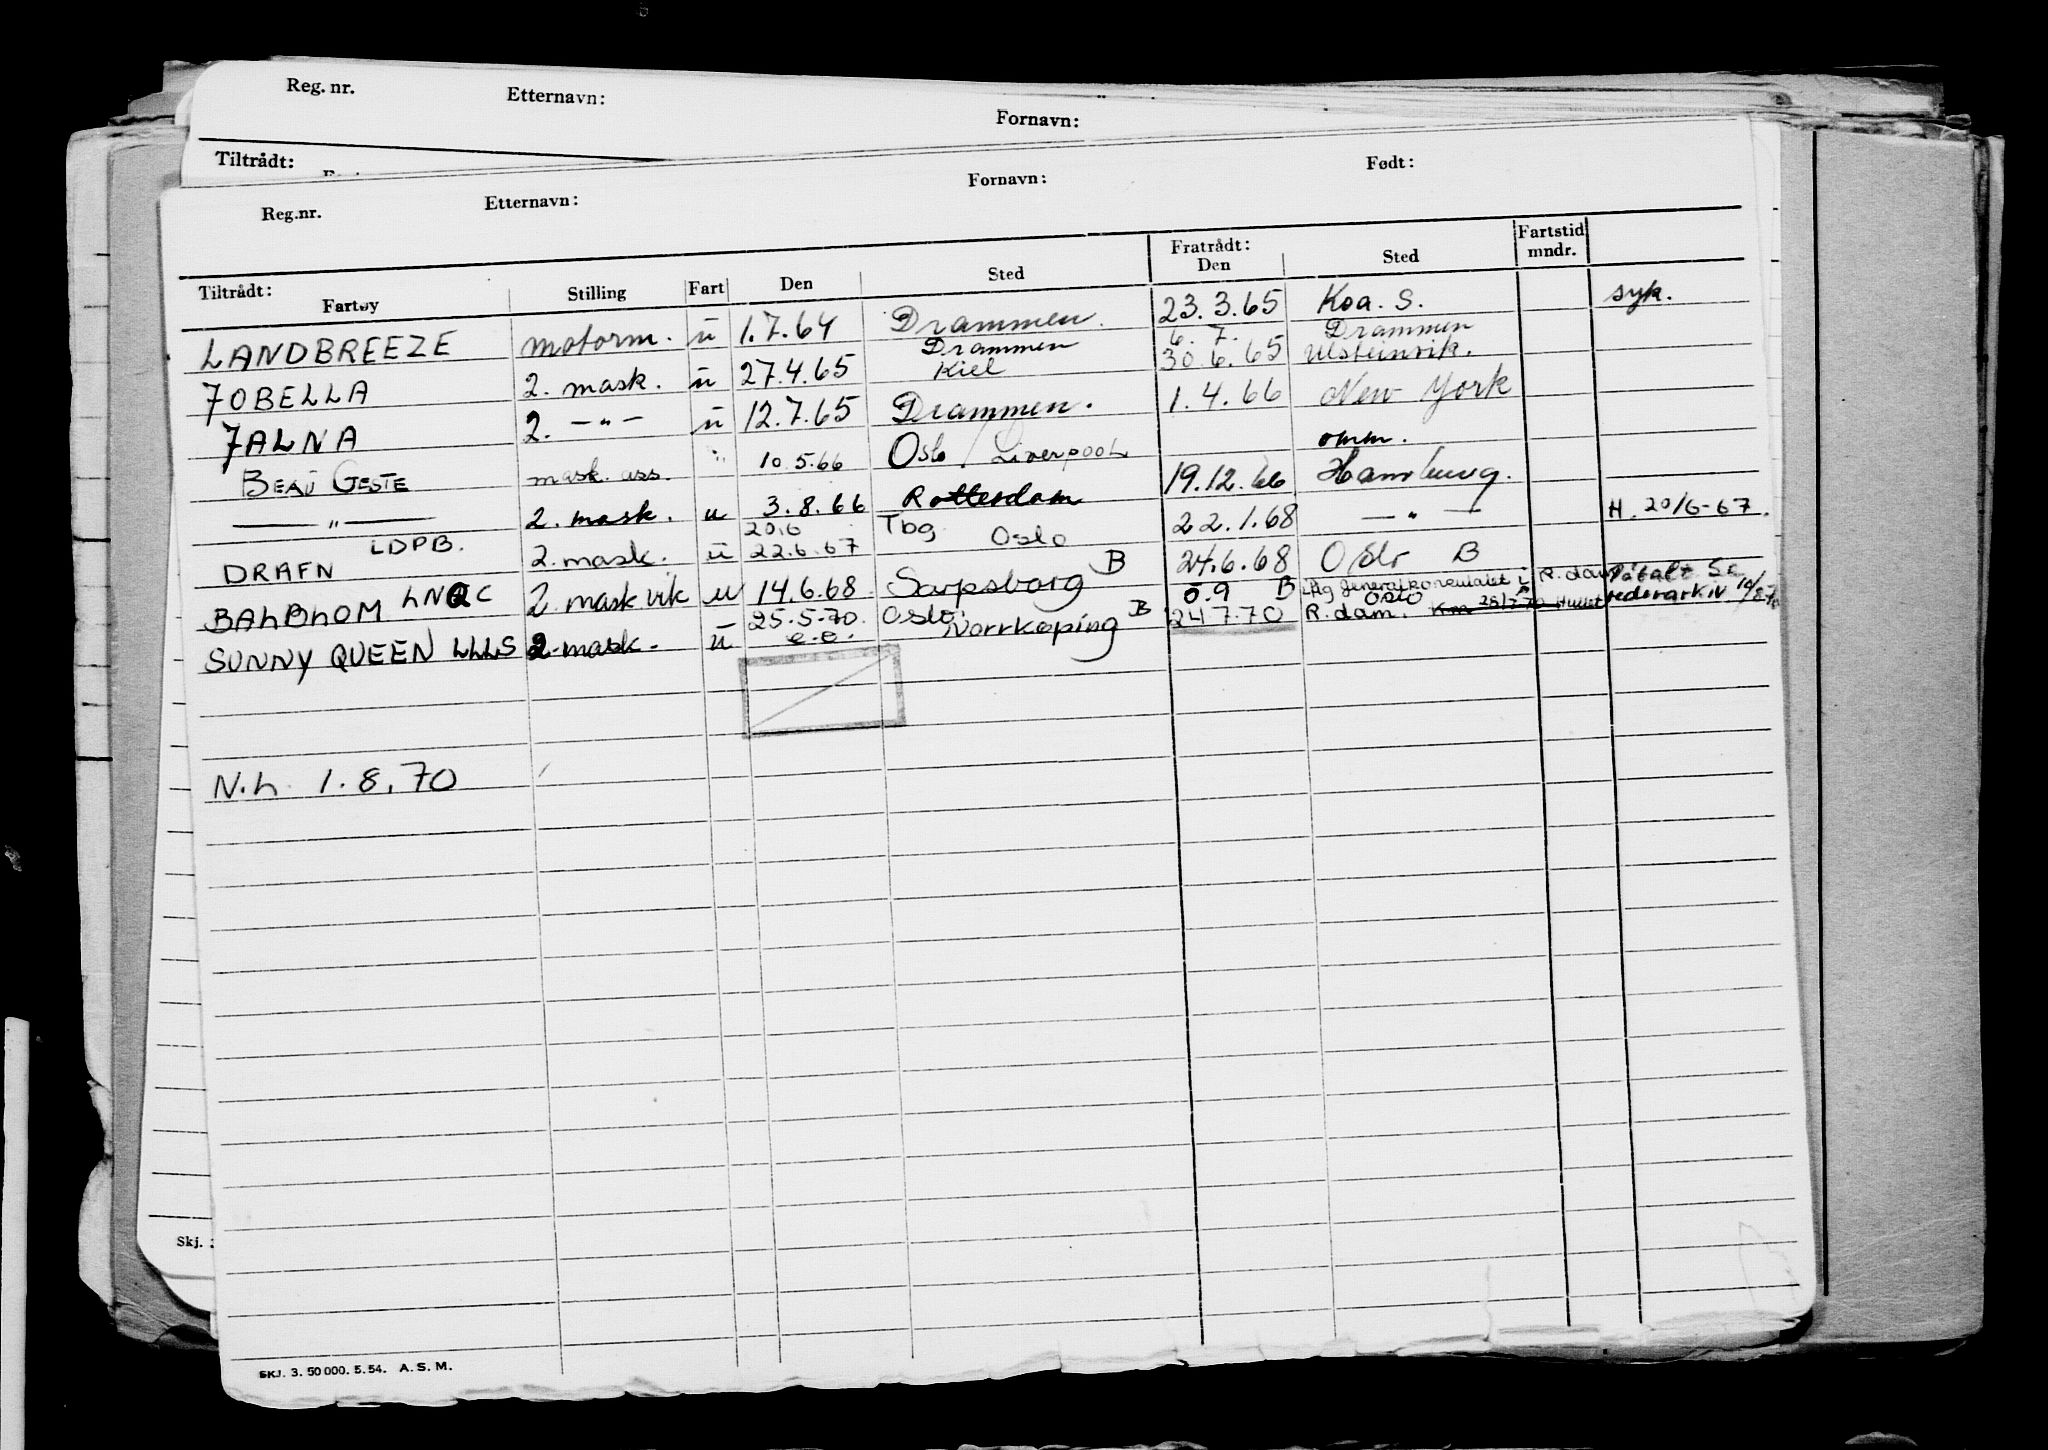 Reg. nr. Etternavn: Fornavn:
Tiltrådt:
Reg.nr. Etternavn: Fornavn: Født:
Tiltrådt: Fratrådt: Fartstid
Fartøy Stilling Fart Den Sted Den Sted mndr.
LANDBREEZE motorm. u 1.7.64 Drammen. 23.3.65 Koa. S. syk.
Drammen 6.7. Drammen
JOBELLA 2. mask. u 27.4.65 Kiel 30.6.65 Ulsteinvik.
JALNA 2. —"— u 12.7.65 Drammen. 1.4.66 New York
BEAU GESTE mask. ass. 10.5.66 Oslo / Liverpool omm.
—"— 2. mask. u 3.8.66 Rotterdam 19.12.66 Hamburg.
LDPB. 20.6 Tbg
DRAFN 2. mask. u 22.6.67 Oslo 22.1.68 —"— H. 20/6-67.
BALBLOM LNQC 2. mask vik u 14.6.68 Sarpsborg B 24.6.68 Oslo B
25.5.70. Oslo: B 5.9 B generalkonsulatet i R.dam Påtalt
SUNNY QUEEN LLLS 2. mask. u e.o. Norrkøping 24.7.70 R.dam. Oslo
N.L. 1.8.70
Skj.
SKJ. 3. 50 000. 5. 54. A. S. M.